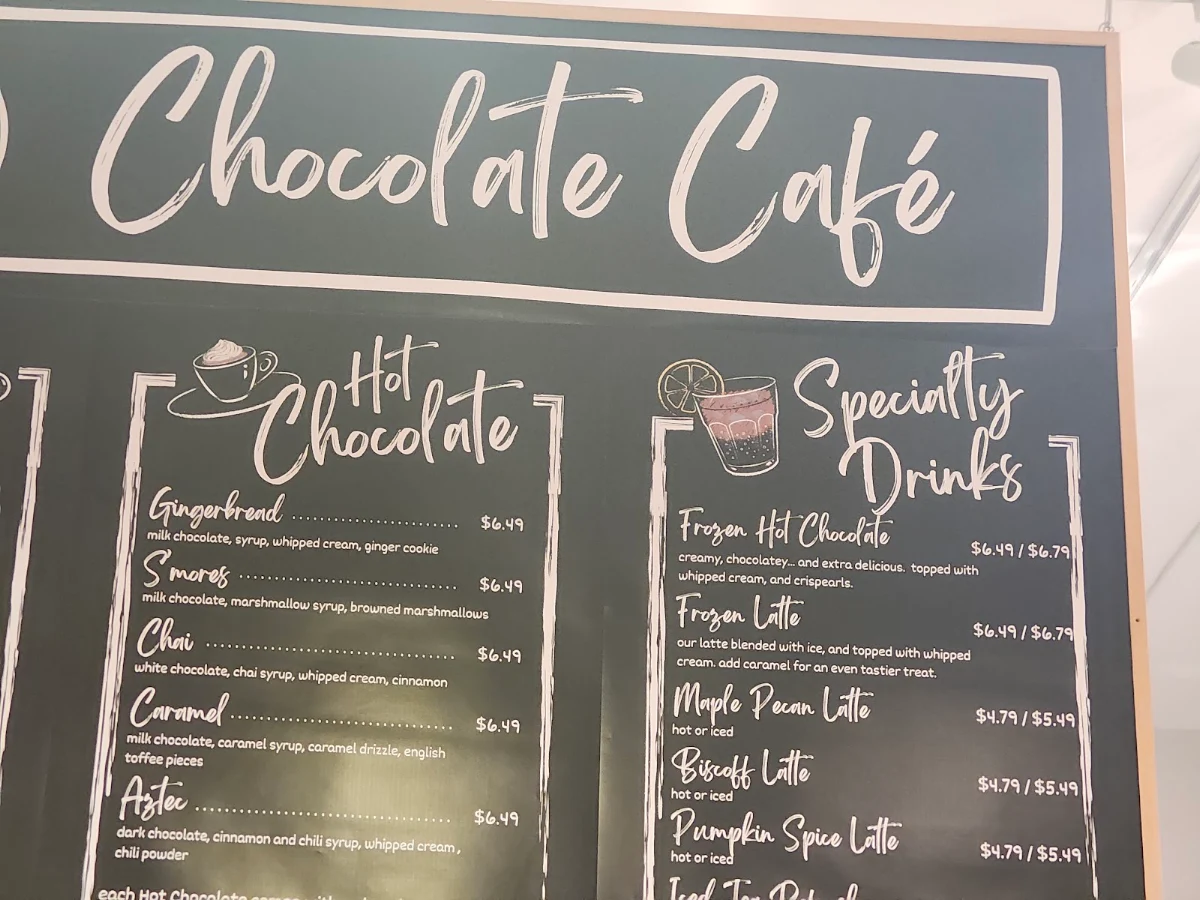 Chocolate Café
Hot
Chocolate
Gingerbread ........................ $6.49
milk chocolate, syrup, whipped cream, ginger cookie
S'mores ........................ $6.49
milk chocolate, marshmallow syrup, browned marshmallows
Chai ........................ $6.49
white chocolate, chai syrup, whipped cream, cinnamon
Caramel ........................ $6.49
milk chocolate, caramel syrup, caramel drizzle, english
toffee pieces
Aztec ........................ $6.49
dark chocolate, cinnamon and chili syrup, whipped cream,
chili powder
each Hot Chocolate
Specialty
Drinks
Frozen Hot Chocolate $6.49 / $6.79
creamy, chocolatey... and extra delicious. topped with
whipped cream, and crispearls.
Frozen Latte $6.49 / $6.79
our latte blended with ice, and topped with whipped
cream. add caramel for an even tastier treat.
Maple Pecan Latte $4.79 / $5.49
hot or iced
Biscoff Latte $4.79 / $5.49
hot or iced
Pumpkin Spice Latte $4.79 / $5.49
hot or iced
Iced Tea